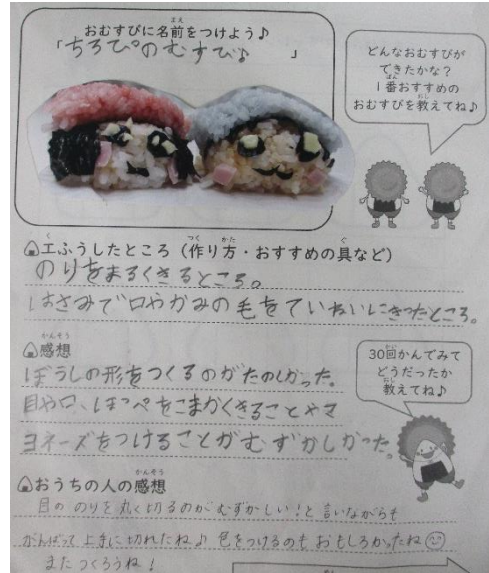 おむすびに名前をつけよう♪
「ちろぴのむすび♪ 」
どんなおむすびが
できたかな？
1番おすすめの
おむすびを教えてね♪
工ふうしたところ（作り方・おすすめの具など）
のりをまるくきるところ。
はさみで口やかみの毛をていねいにきったところ。
感想
ぼうしの形をつくるのがたのしかった。
目や口、ほっぺをこまかくきることやマ
ヨネーズをつけることがむずかしかった。
30回かんでみて
どうだったか
教えてね♪
おうちの人の感想
目の のりを丸く切るのがむずかしい！と言いながらも
がんばって上手に切れたね♪ 色をつけるのもおもしろかったね
またつくろうね！